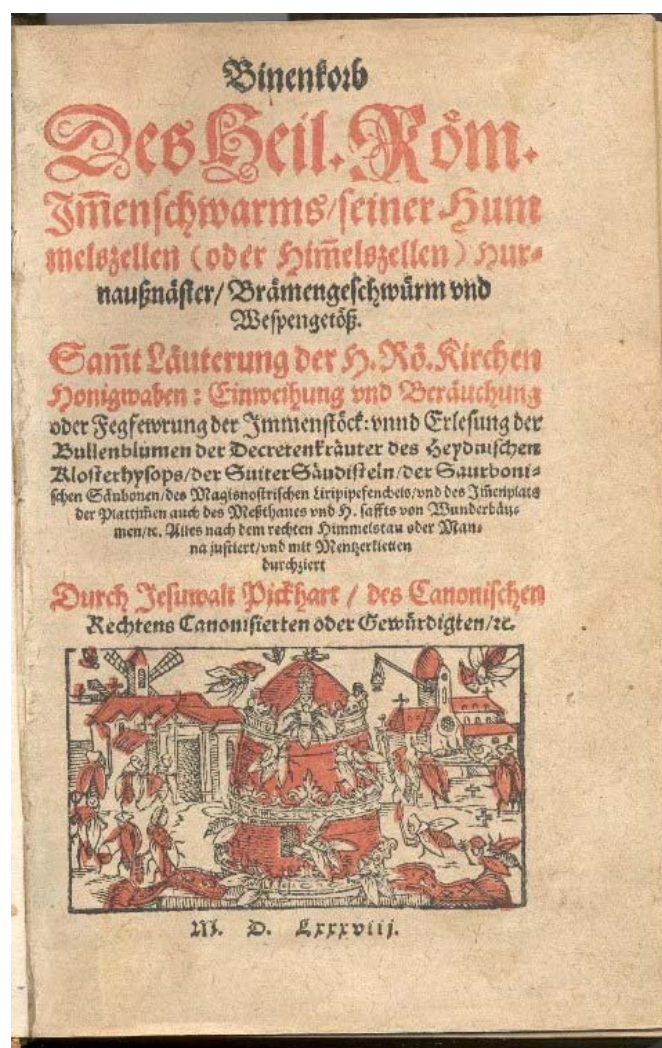 Binenkorb
Des Heil. Röm.
Im̃enschwarms/seiner Hum
melszellen (oder Him̃elszellen) Hur-
naußnäster/ Brämengeschwürm vnd
Wespengetöß.
Sam̃t Läuterung der H. Rö. Kirchen
Honigwaben: Einweihung vnd Beräuchung
oder Fegfewrung der Immenstöck: vnnd Erlesung der
Bullenblumen der Decretenkräuter des Heydnischen
Klosterhysops/der SuiterSäudisteln/der Saurboni-
schen Säubonen/des Magisnostrischen Liripipefenchels/vnd des Im̃enplats
der Plattim̃en auch des Meßthaues vnd H. saffts von Wunderbäu-
men/ꝛc. Alles nach dem rechten Himmelstau oder Man-
na justiert/vnd mit Mentzerkletten
durchziert
Durch Jesuwalt Pickhart / des Canonischen
Rechtens Canonisierten oder Gewürdigten/ꝛc.
M. D. Lxxxviij.